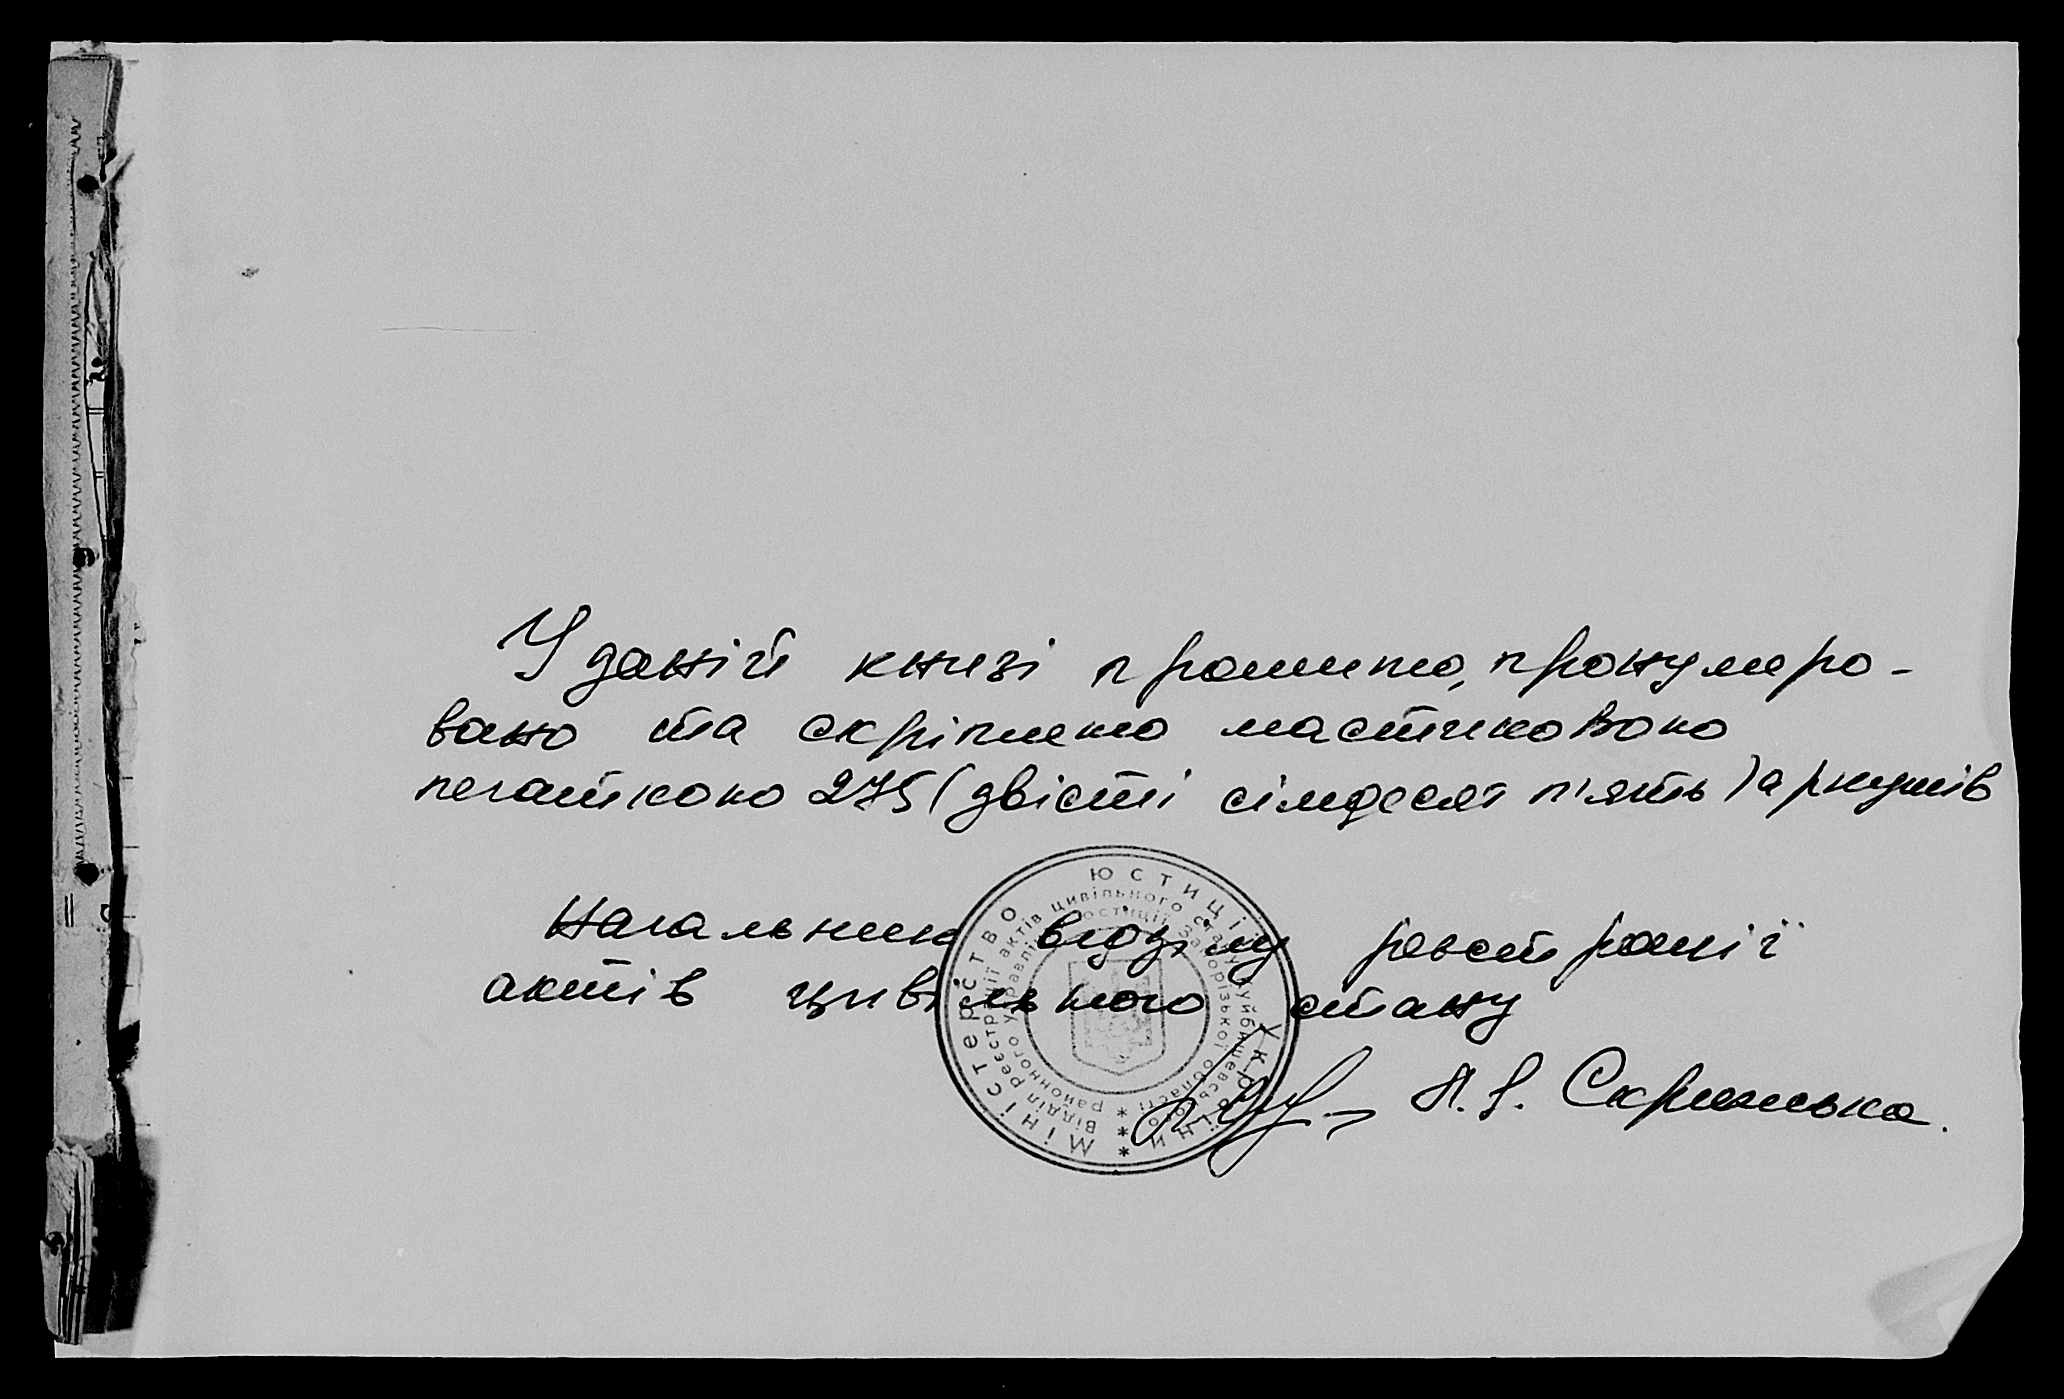 У даній книзі прошито, пронумеро-
вано та скріплено мастиковою
печаткою 275 (двісті сімдесят п'ять) аркушів
Начальник відділу реєстрації
актів цивільного стану
Л.Я. Скринська.
Міністерство юстиції України *
Відділ реєстрації актів цивільного стану Куйбишевського *
районного управління юстиції Запорізької області *